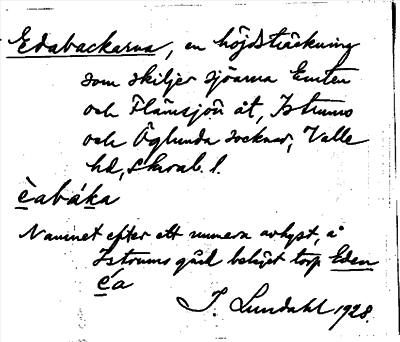 Edabackarna, en höjdsträckning
som skiljer sjöarna Emten
och Flämsjön åt, Istrums
och Öglunda socknar, Valle
hd, Skarab. l.
èabáka
Namnet efter ett numera avhyst, å
Istrums gärd beläget torp Eden
éa
I. Lundahl 1928.